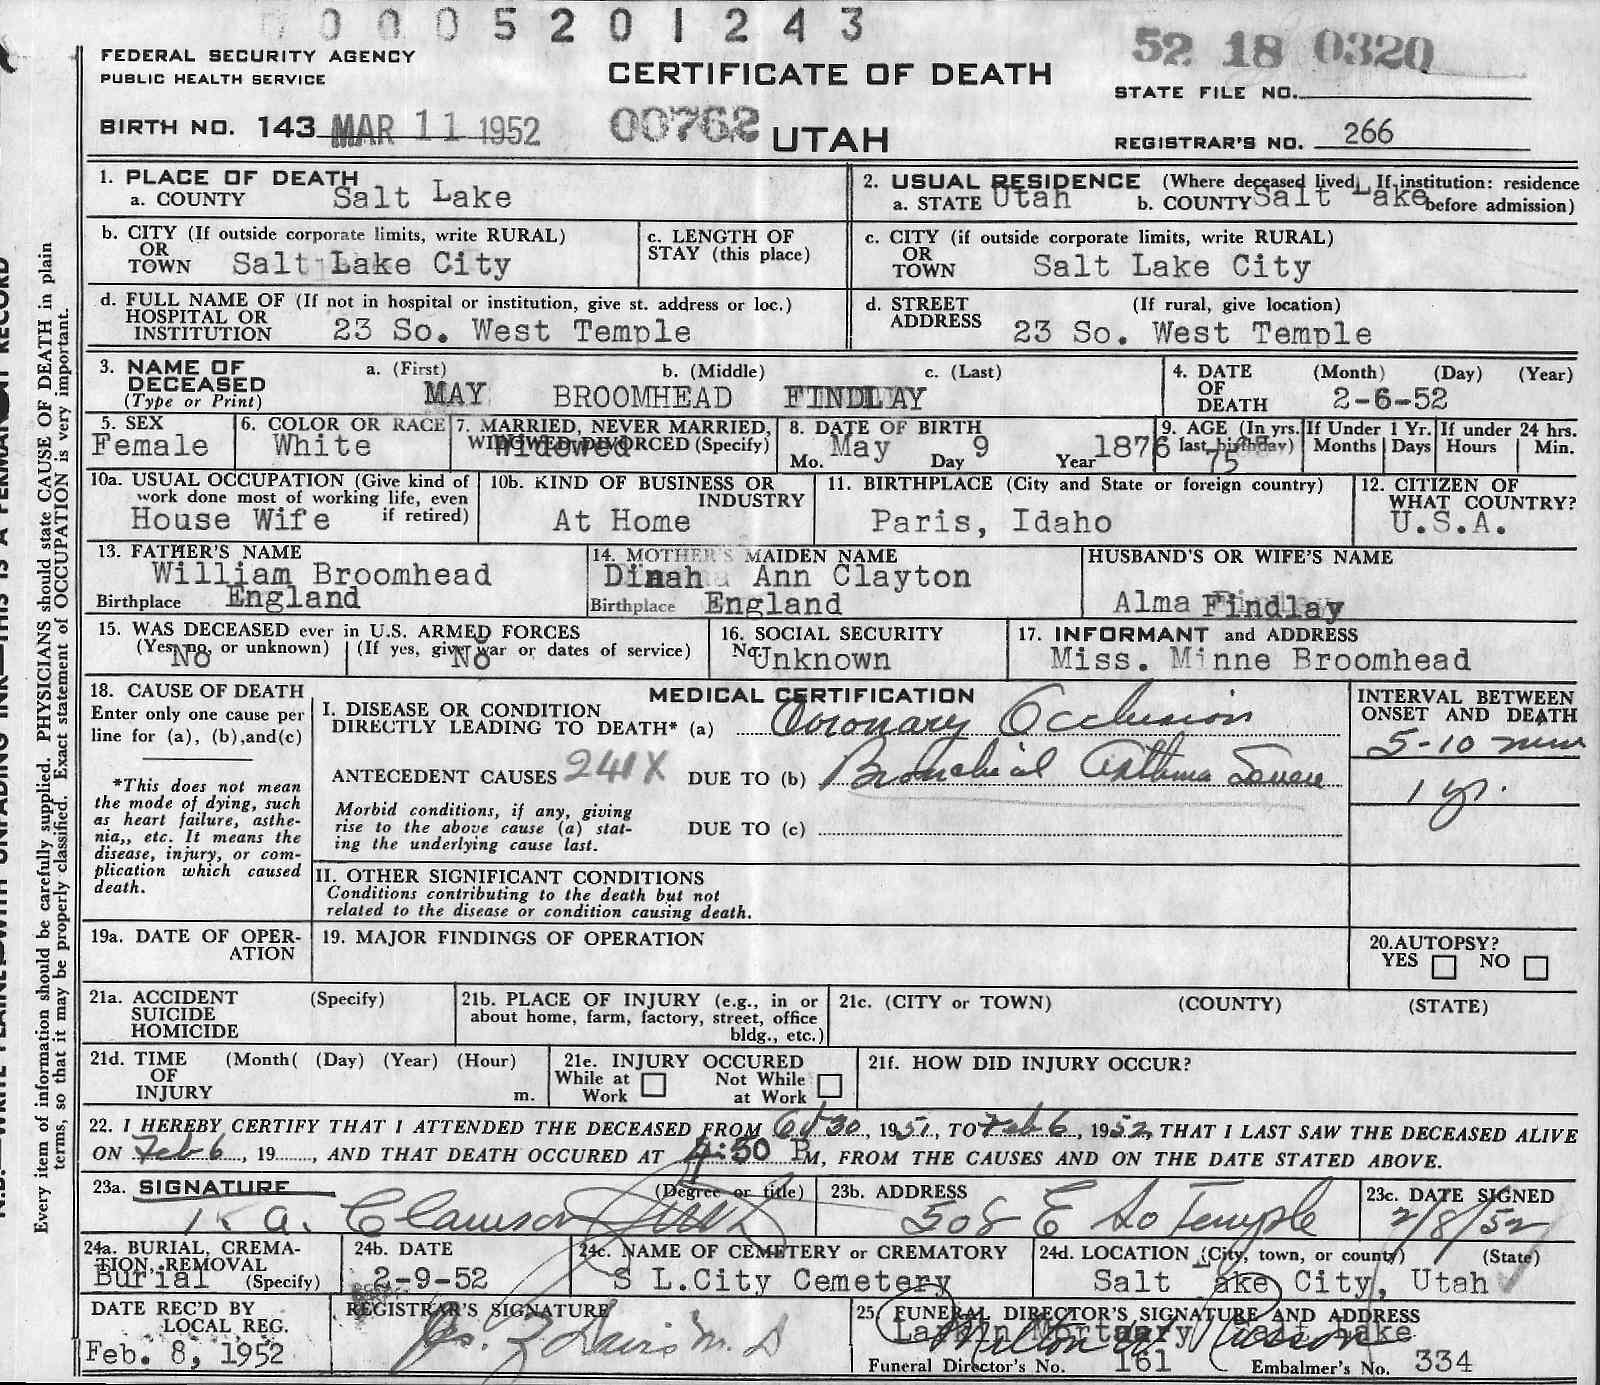 0005201243
FEDERAL SECURITY AGENCY
PUBLIC HEALTH SERVICE
CERTIFICATE OF DEATH
52 18 0320
STATE FILE NO.
BIRTH NO. 143 MAR 11 1952
00762 UTAH
REGISTRAR'S NO. 266
1. PLACE OF DEATH
a. COUNTY Salt Lake
2. USUAL RESIDENCE (Where deceased lived. If institution: residence
a. STATE Utah b. COUNTY Salt Lake before admission)
b. CITY (If outside corporate limits, write RURAL)
OR
TOWN Salt Lake City
c. LENGTH OF
STAY (this place)
c. CITY (if outside corporate limits, write RURAL)
OR
TOWN Salt Lake City
d. FULL NAME OF (If not in hospital or institution, give st. address or loc.)
HOSPITAL OR
INSTITUTION 23 So. West Temple
d. STREET (If rural, give location)
ADDRESS 23 So. West Temple
3. NAME OF
DECEASED
(Type or Print)
a. (First) b. (Middle) c. (Last)
MAY BROOMHEAD FINDLAY
4. DATE (Month) (Day) (Year)
OF
DEATH 2-6-52
5. SEX
Female
6. COLOR OR RACE
White
7. MARRIED, NEVER MARRIED,
WIDOWED, DIVORCED (Specify)
Widowed
8. DATE OF BIRTH
Mo. May Day 9 Year 1876
9. AGE (In yrs.
last birthday)
75
If Under 1 Yr.
Months Days
If under 24 hrs.
Hours Min.
10a. USUAL OCCUPATION (Give kind of
work done most of working life, even
if retired)
House Wife
10b. KIND OF BUSINESS OR
INDUSTRY
At Home
11. BIRTHPLACE (City and State or foreign country)
Paris, Idaho
12. CITIZEN OF
WHAT COUNTRY?
U.S.A.
13. FATHER'S NAME
William Broomhead
Birthplace England
14. MOTHER'S MAIDEN NAME
Dinah Ann Clayton
Birthplace England
HUSBAND'S OR WIFE'S NAME
Alma Findlay
15. WAS DECEASED ever in U.S. ARMED FORCES
(Yes, no, or unknown) (If yes, give war or dates of service)
No No
16. SOCIAL SECURITY
No. Unknown
17. INFORMANT and ADDRESS
Miss. Minne Broomhead
18. CAUSE OF DEATH
Enter only one cause per
line for (a), (b), and (c)
*This does not mean
the mode of dying, such
as heart failure, asthe-
nia,, etc. It means the
disease, injury, or com-
plication which caused
death.
MEDICAL CERTIFICATION
I. DISEASE OR CONDITION
DIRECTLY LEADING TO DEATH* (a) Coronary Occlusion
ANTECEDENT CAUSES 241X DUE TO (b) Bronchial Asthma Severe
Morbid conditions, if any, giving
rise to the above cause (a) stat-
ing the underlying cause last.
DUE TO (c)
INTERVAL BETWEEN
ONSET AND DEATH
5-10 min
1 yr.
II. OTHER SIGNIFICANT CONDITIONS
Conditions contributing to the death but not
related to the disease or condition causing death.
19a. DATE OF OPER-
ATION
19. MAJOR FINDINGS OF OPERATION
20. AUTOPSY?
YES NO
21a. ACCIDENT (Specify)
SUICIDE
HOMICIDE
21b. PLACE OF INJURY (e.g., in or
about home, farm, factory, street, office
bldg., etc.)
21c. (CITY or TOWN) (COUNTY) (STATE)
21d. TIME (Month( (Day) (Year) (Hour)
OF
INJURY m.
21e. INJURY OCCURED
While at Work
Not While at Work
21f. HOW DID INJURY OCCUR?
22. I HEREBY CERTIFY THAT I ATTENDED THE DECEASED FROM 30, 1951, TO Feb 6, 1952, THAT I LAST SAW THE DECEASED ALIVE
ON Feb 6, 19 , AND THAT DEATH OCCURED AT 4:50 PM, FROM THE CAUSES AND ON THE DATE STATED ABOVE.
23a. SIGNATURE (Degree or title)
Clawson
23b. ADDRESS
508 E So Temple
23c. DATE SIGNED
2/8/52
24a. BURIAL, CREMA-
TION, REMOVAL
Burial (Specify)
24b. DATE
2-9-52
24c. NAME OF CEMETERY or CREMATORY
S L.City Cemetery
24d. LOCATION (City, town, or county) (State)
Salt ake City, Utah
DATE REC'D BY
LOCAL REG.
Feb. 8, 1952
REGISTRAR'S SIGNATURE
25. FUNERAL DIRECTOR'S SIGNATURE AND ADDRESS
Larkin Mortuary Salt Lake
Funeral Director's No. 161 Embalmer's No. 334
Every item of information should be carefully supplied. PHYSICIANS should state CAUSE OF DEATH in plain
terms, so that it may be properly classified. Exact statement of OCCUPATION is very important.